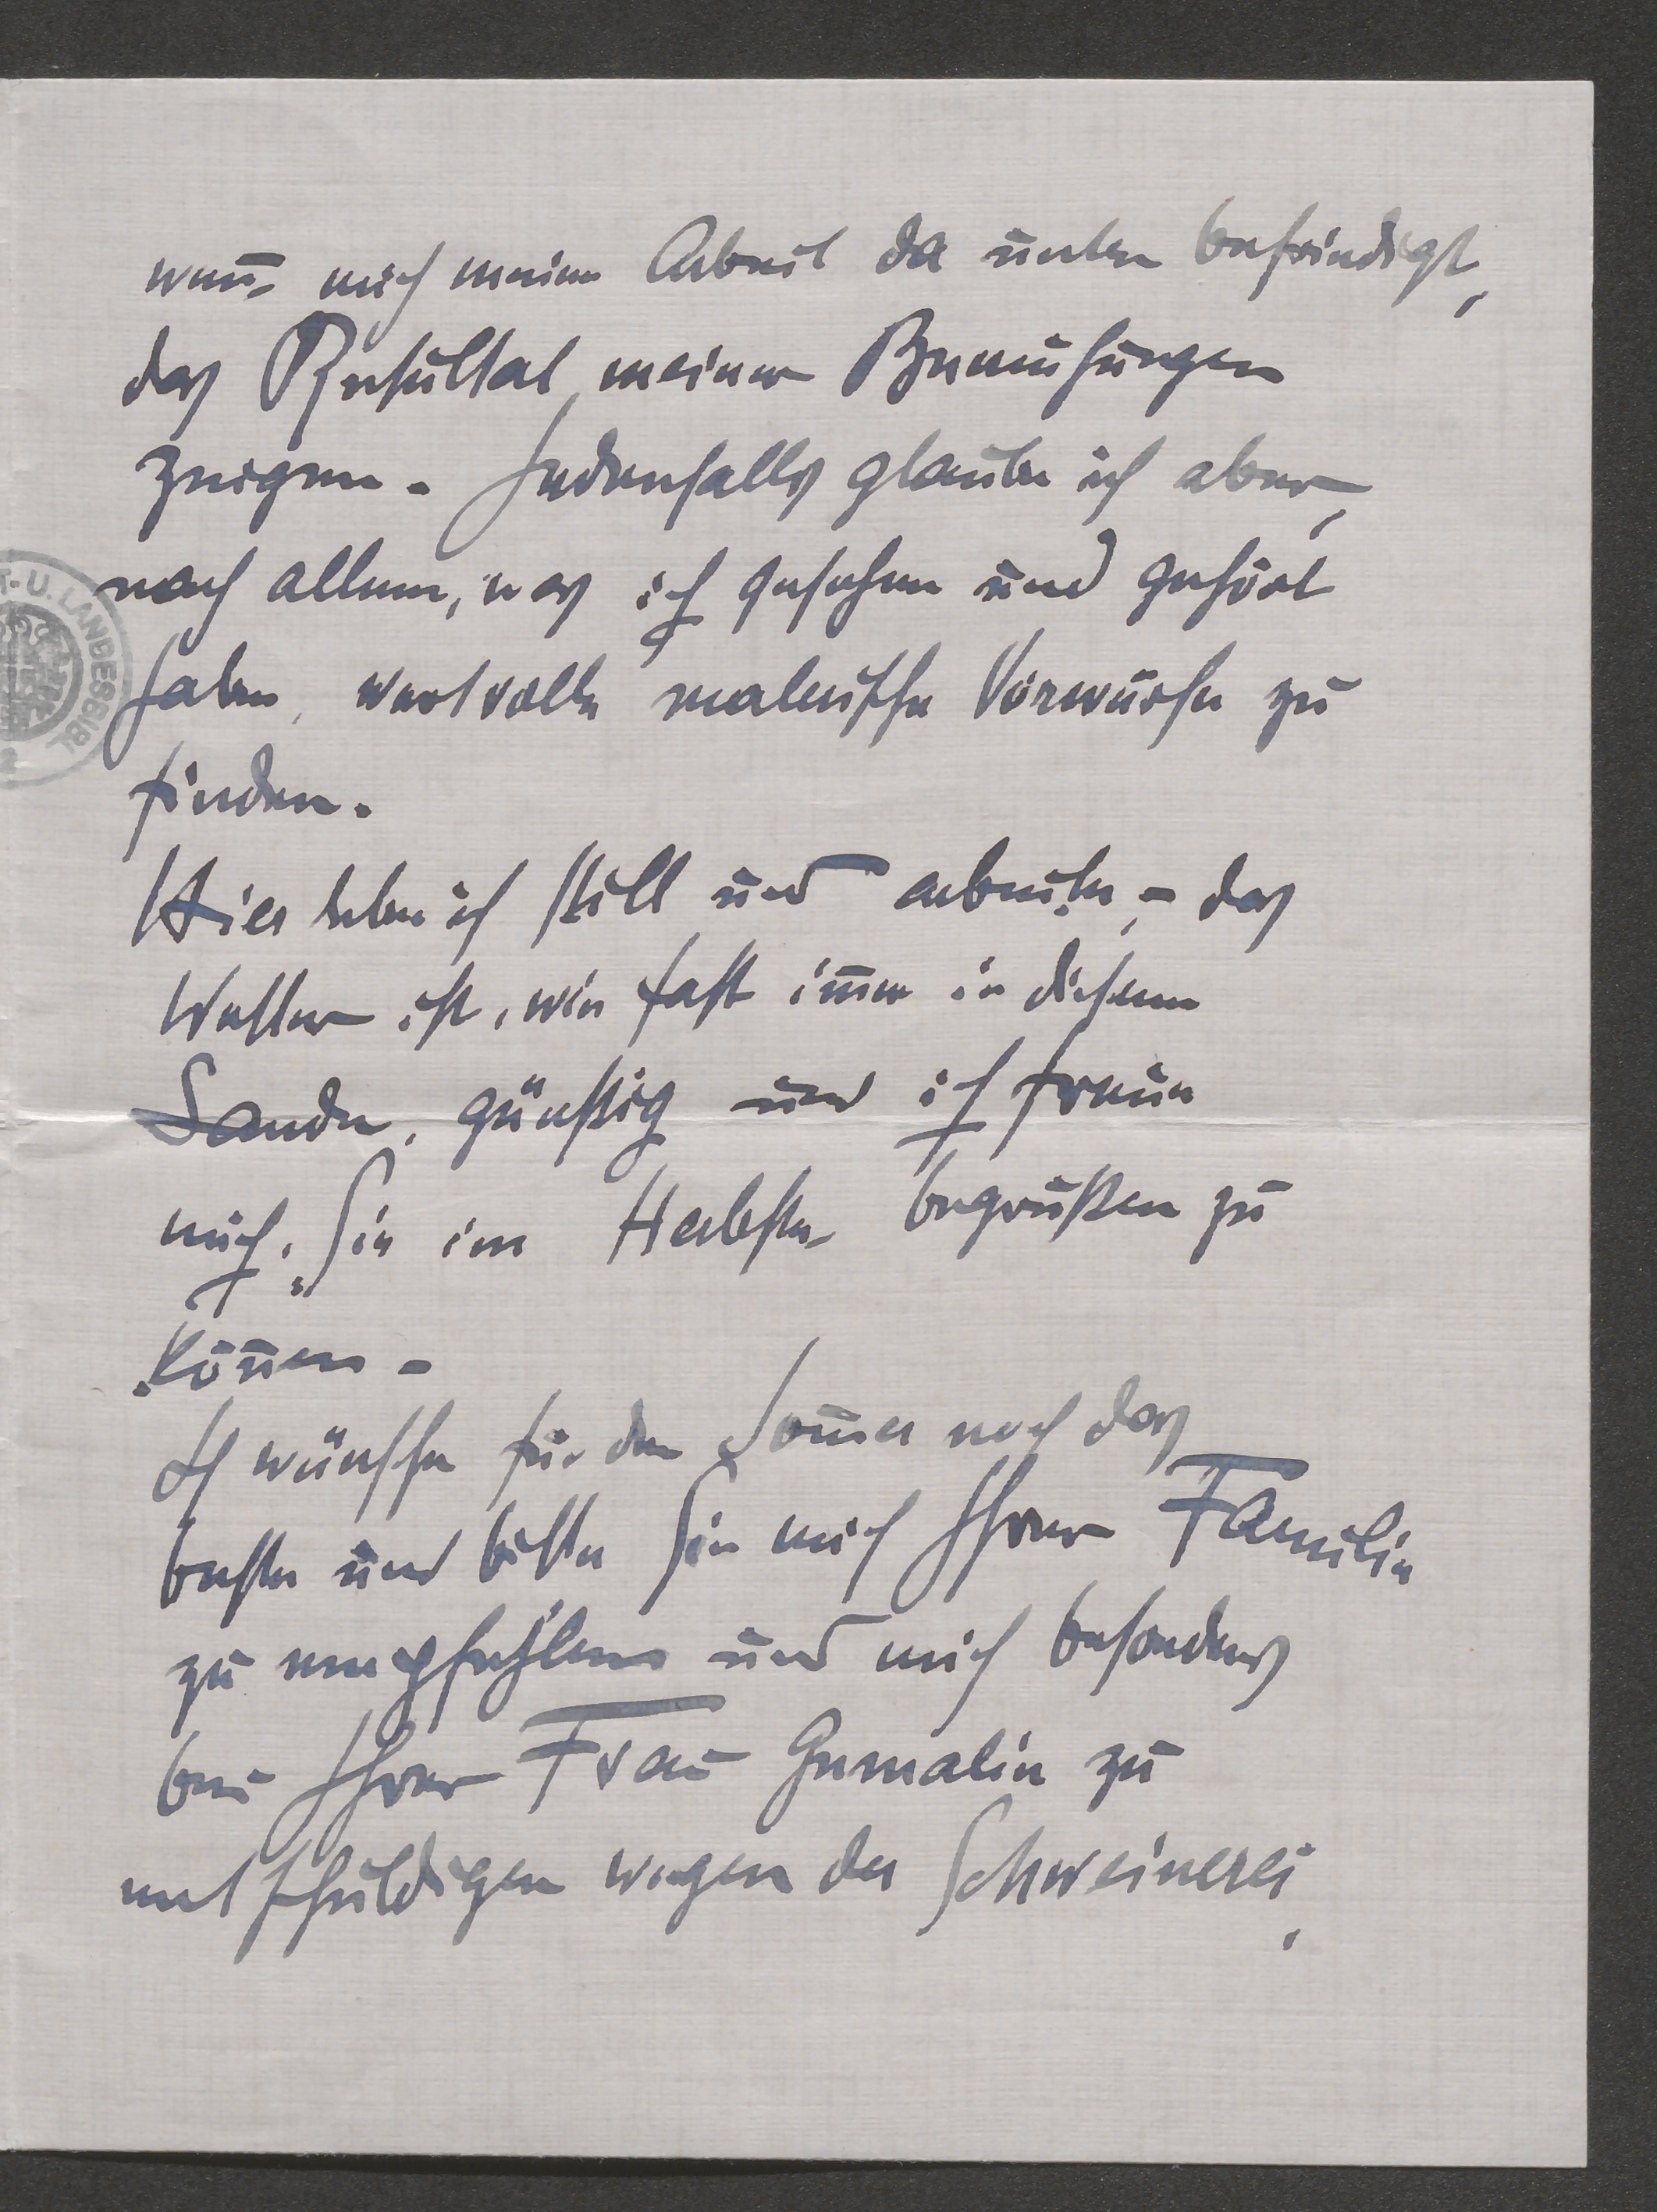 wen̄ mich meine Arbeit da unten befriedigt,
das Resultat meiner Bemühungen
zeigen. Jedenfalls glaube ich aber,
nach allem, was ich gesehen und gehört
habe, wertvolle malerische Vorwürfe zu
finden.
Hier lebe ich still und arbeite, - das
Wetter ist, wie fast im̄er in diesem
Lande, günstig und ich freue
mich, Sie im Herbste begrüßen zu
kön̄en -
Ich wünsche für den Som̄er noch das
beste und bitte Sie mich Ihrer Familie
zu empfehlen und mich besonders
bei Ihrer Frau Gemalin zu
entschuldigen wegen der Schweinerei,
T.- U. LANDESBIBL